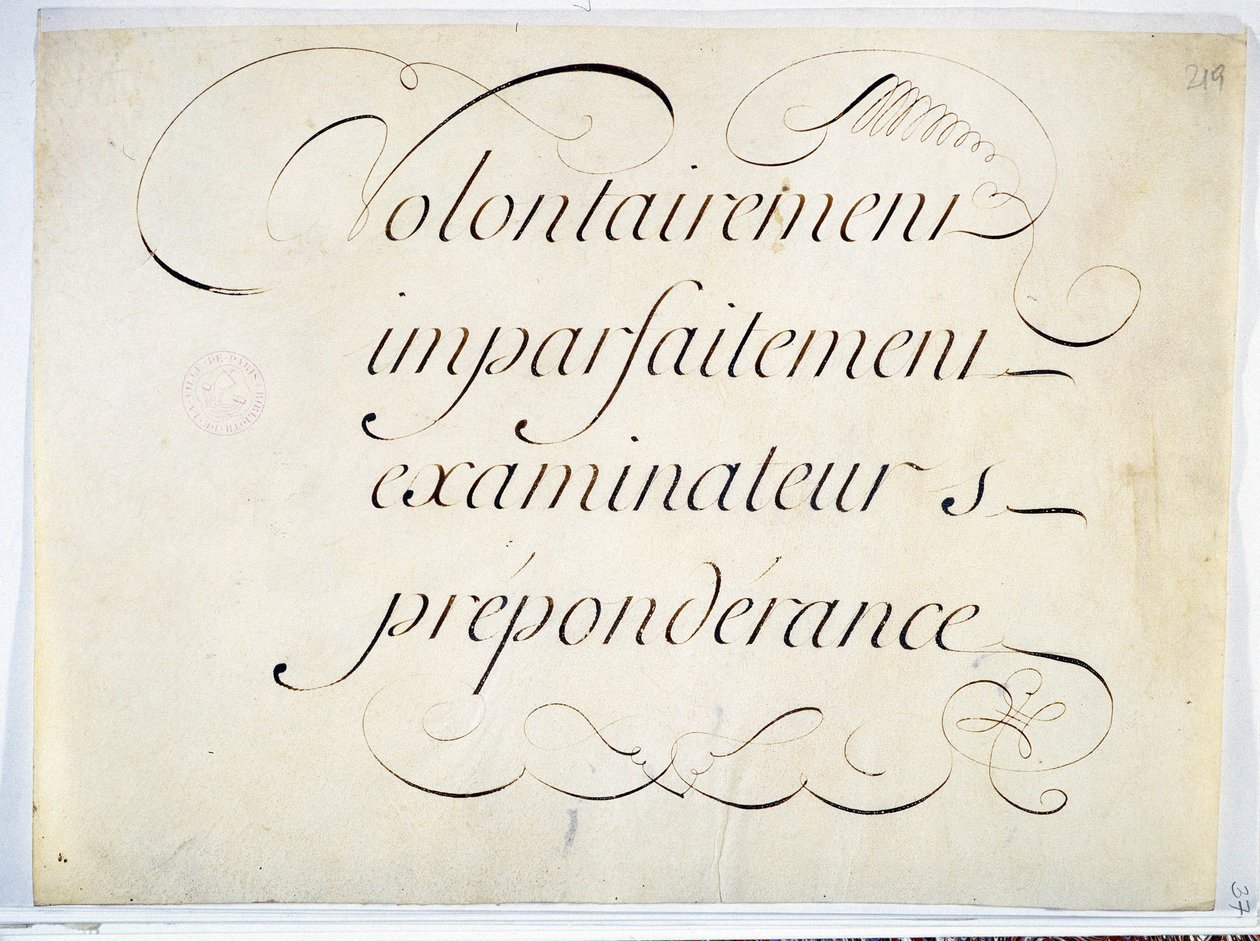 219
Volontairement
imparfaitement
examinateur s
prépondérance
VILLE DE PARIS BIBLIOTH
37